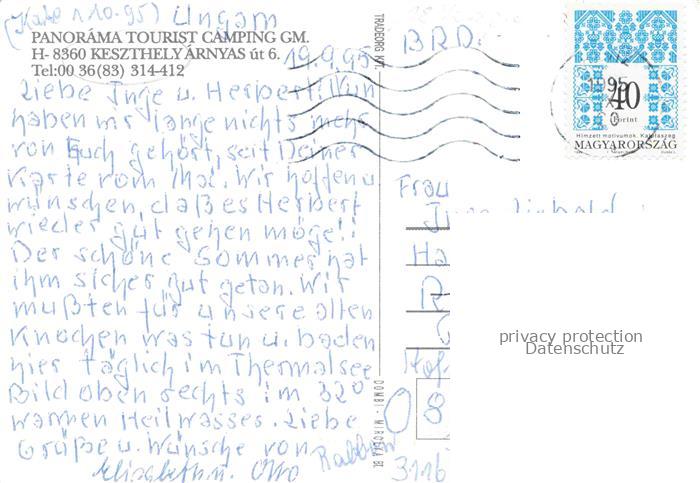 (Kate 1.10.95) Ungarn
PANORÁMA TOURIST CAMPING GM.
H- 8360 KESZTHELY ÁRNYAS út 6.
Tel:00 36(83) 314-412
19.9.95
Liebe Inge u. Herbert! Nun
haben wir lange nichts mehr
von Euch gehört, seit Deiner
Karte vom Mai. Wir hoffen u.
wünschen, daß es Herbert
wieder gut gehen möge!!
Der schöne Sommer hat
ihm sicher gut getan. Wir
mußten für unsere alten
Knochen was tun u. baden
hier täglich im Thermalsee
Bild oben rechts im 32°
warmen Heilwasser. Liebe
Grüße u. Wünsche von
Elisabeth u. Otto
TRADEORG KFT.
DOMBI - MIROSKA BT.
BRD.
1995
40
Forint
Hímzett motívumok. Kalotaszeg
MAGYARORSZÁG
Frau
Ha
3116
privacy protection
Datenschutz